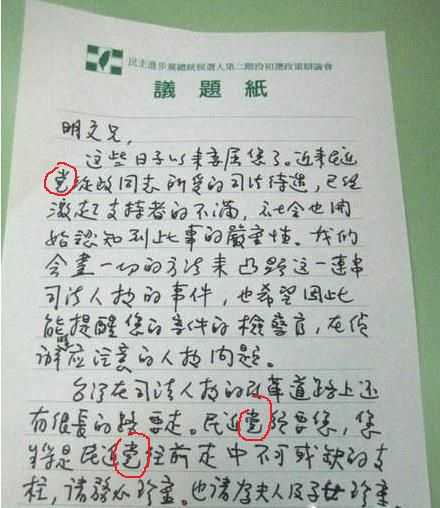 民主進步黨總統候選人第二階段初選政策辯論會
議題紙
明文兄,
這些日子以來委屈您了。近來民進
党從政同志所受的司法待遇,已經
激起支持者的不滿,社会也開
始認知到此事的嚴重性。我們
会盡一切的方法來凸顯這一連串
司法人权的事件,也希望因此
能提醒您的案件的檢警官,在偵
辦應注意的人权問題。
台灣在司法人权的改革道路上还
有很長的路要走。民進党須要您,您
將是民進党往前走中不可或缺的支
柱,請務必珍重。也請 夫人及子女珍重。